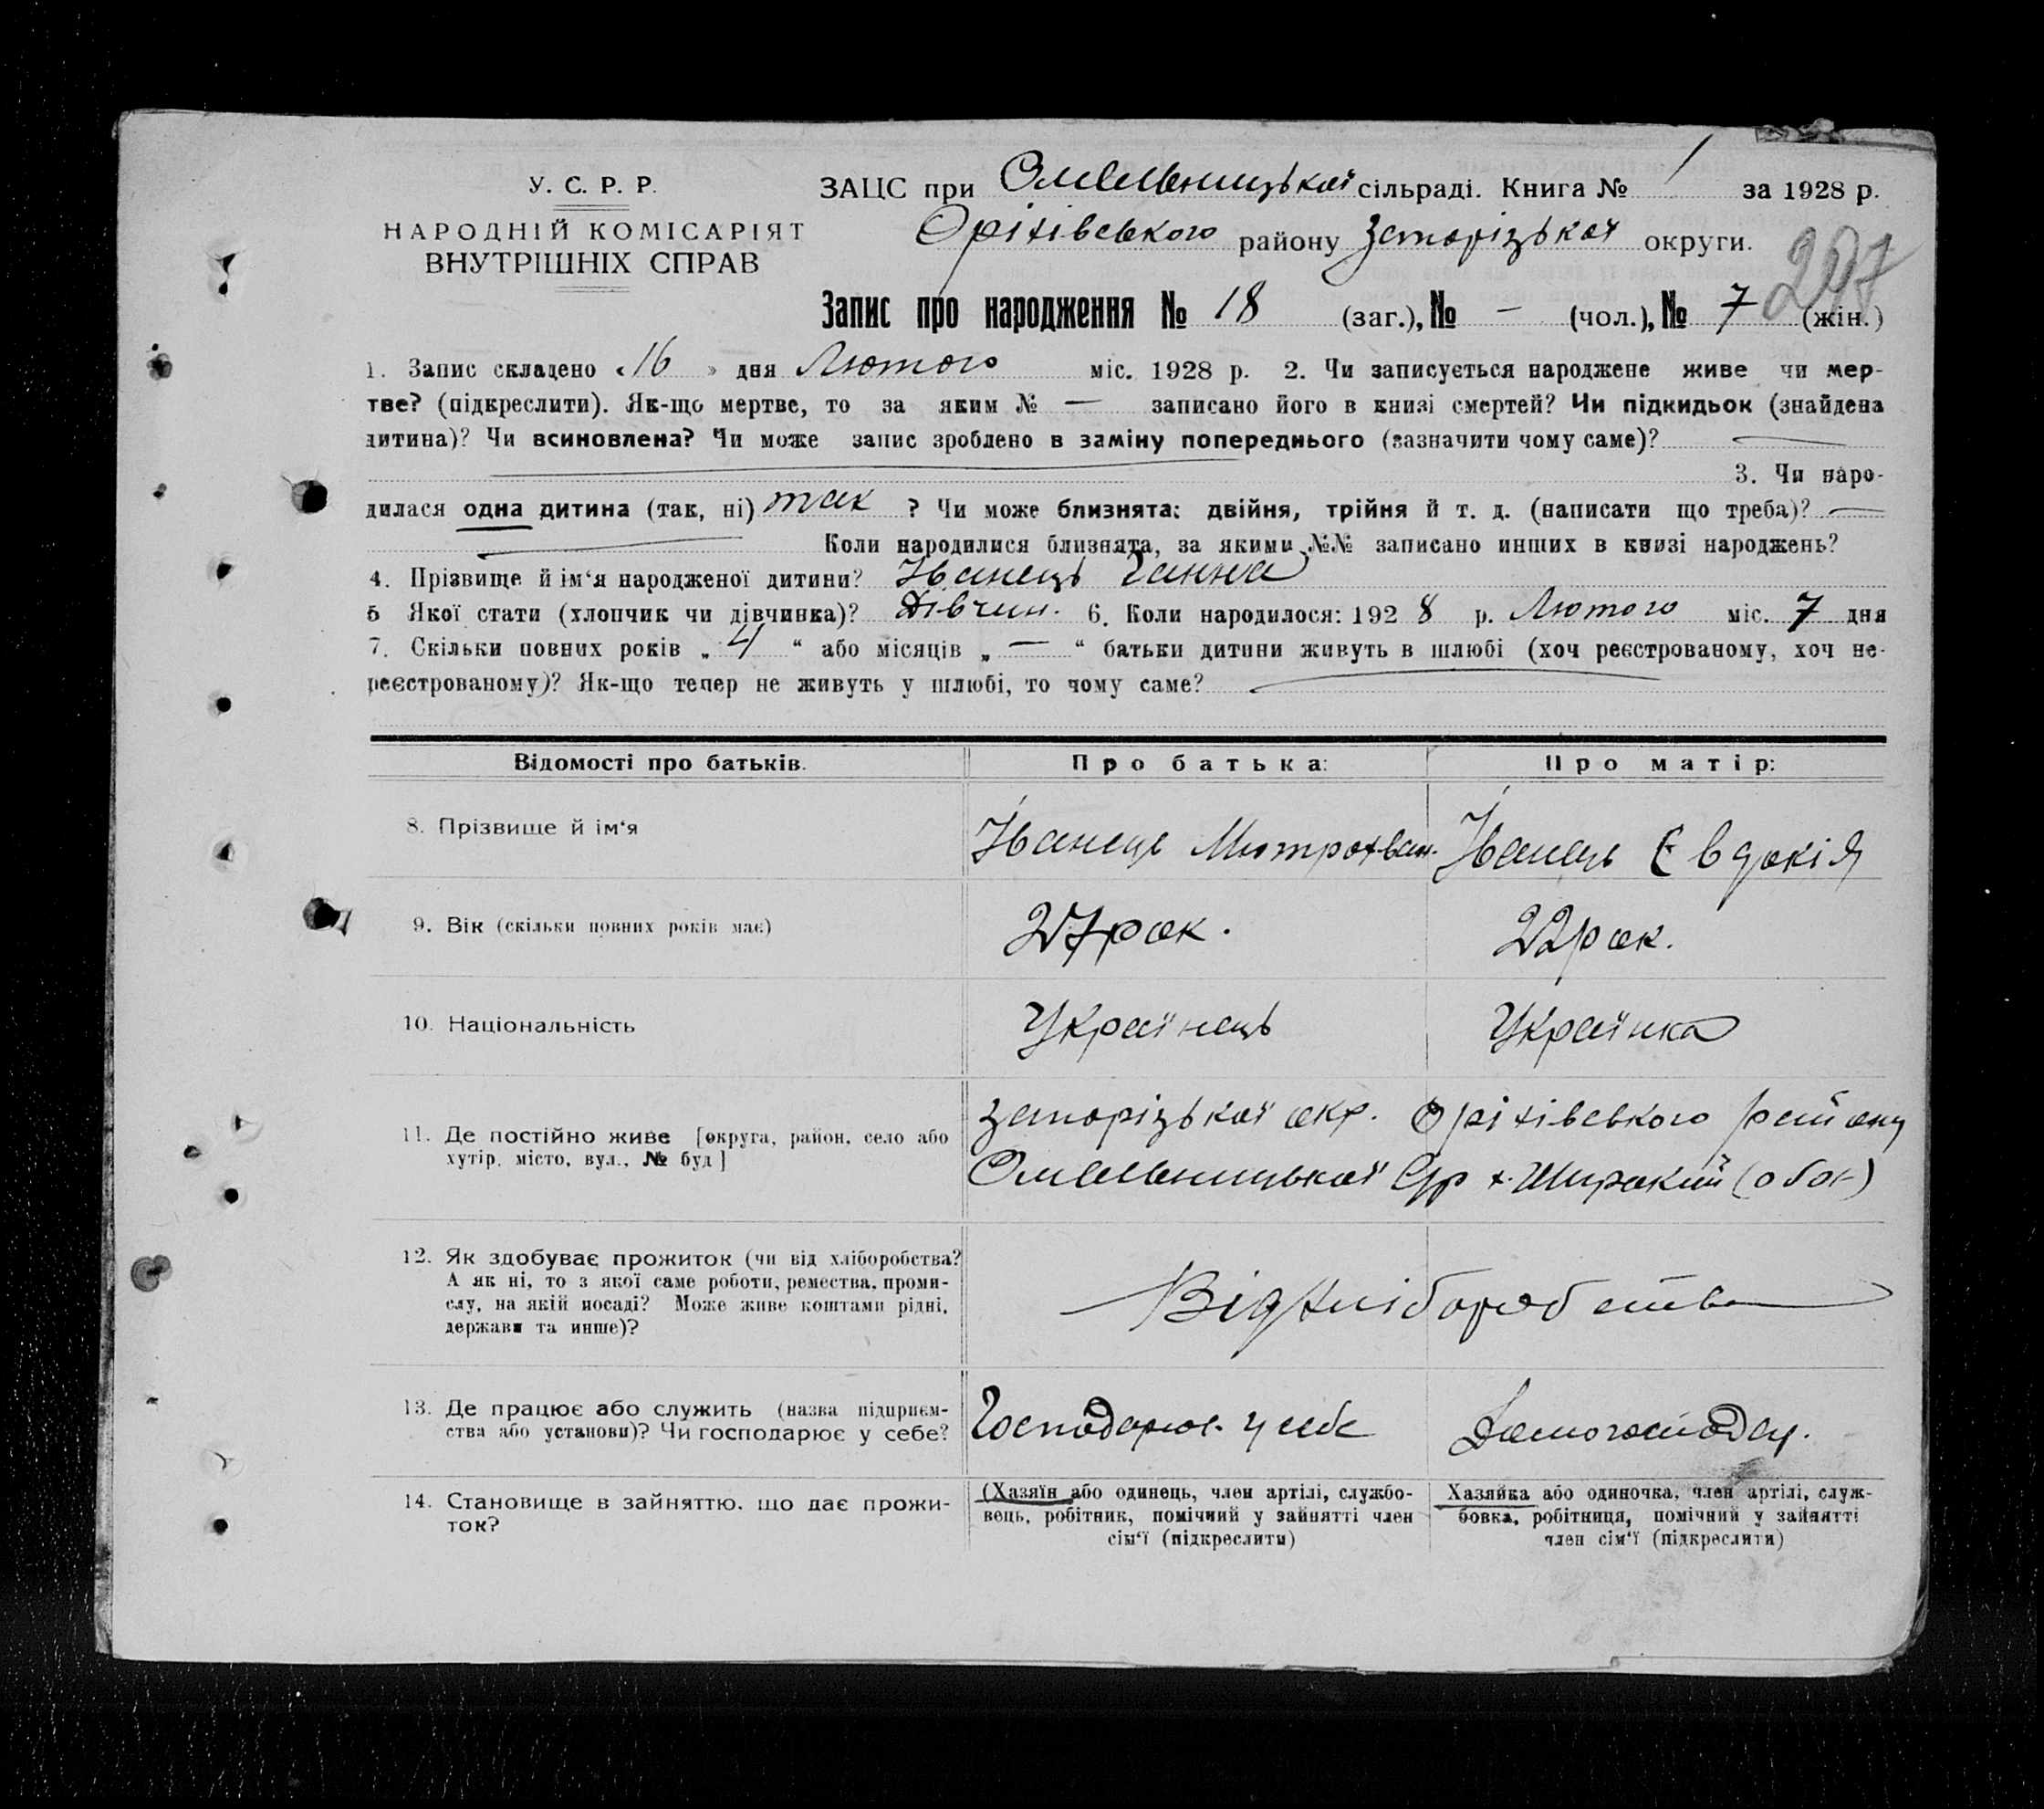 У. С. Р. Р.
НАРОДНІЙ КОМІСАРІЯТ
ВНУТРІШНІХ СПРАВ
ЗАЦС при Омельницької сільраді. Книга № 1 за 1928 р.
Оріхівського району Запорізької округи.
297
Запис про народження № 18 (заг.), № — (чол.), № 7 (жін.)
1. Запис складено « 16 » дня Лютого міс. 1928 р. 2. Чи записується народжене живе чи мер-
тве? (підкреслити). Як-що мертве, то за яким № — записано його в книзі смертей? Чи підкидьок (знайдена
дитина)? Чи всиновлена? Чи може запис зроблено в заміну попереднього (зазначити чому саме)? —
3. Чи наро-
дилася одна дитина (так, ні) так ? Чи може близнята: двійня, трійня й т. д. (написати що треба)? —
Коли народилися близнята, за якими №№ записано инших в книзі народжень?
4. Прізвище й ім‘я народженої дитини? Іванець Ганна
5 Якої стати (хлопчик чи дівчинка)? Дівчин. 6. Коли народилося: 192 8 р. Лютого міс. 7 дня
7. Скільки повних років „ 4 “ або місяців „ — “ батьки дитини живуть в шлюбі (хоч реєстрованому, хоч не-
реєстрованому)? Як-що тепер не живуть у шлюбі, то чому саме? —
Відомості про батьків. Про батька: Про матір:
8. Прізвище й ім‘я Іванець Митрохван. Іванець Євдокія
9. Вік (скільки повних років має) 27 рок. 22 рок.
10. Національність Українець Українка
11. Де постійно живе [округа, район, село або
хутір, місто, вул., № буд]
Запорізької окр. Оріхівського району
Омельницької С/р х. Широкий (обоє)
12. Як здобуває прожиток (чи від хліборобства?
А як ні, то з якої саме роботи, ремества, проми-
слу, на якій посаді? Може живе коштами рідні,
держави та инше)?
Від хліборобства
13. Де працює або служить (назва підприєм-
ства або установи)? Чи господарює у себе?
Господорює. у себе Домогосподар.
14. Становище в зайняттю, що дає прожи-
ток?
(Хазяїн або одинець, член артілі, службо-
вець, робітник, помічний у зайнятті член
сім‘ї (підкреслити)
Хазяйка або одиночка, член артілі, служ-
бовка, робітниця, помічний у зайнятті
член сім‘ї (підкреслити)